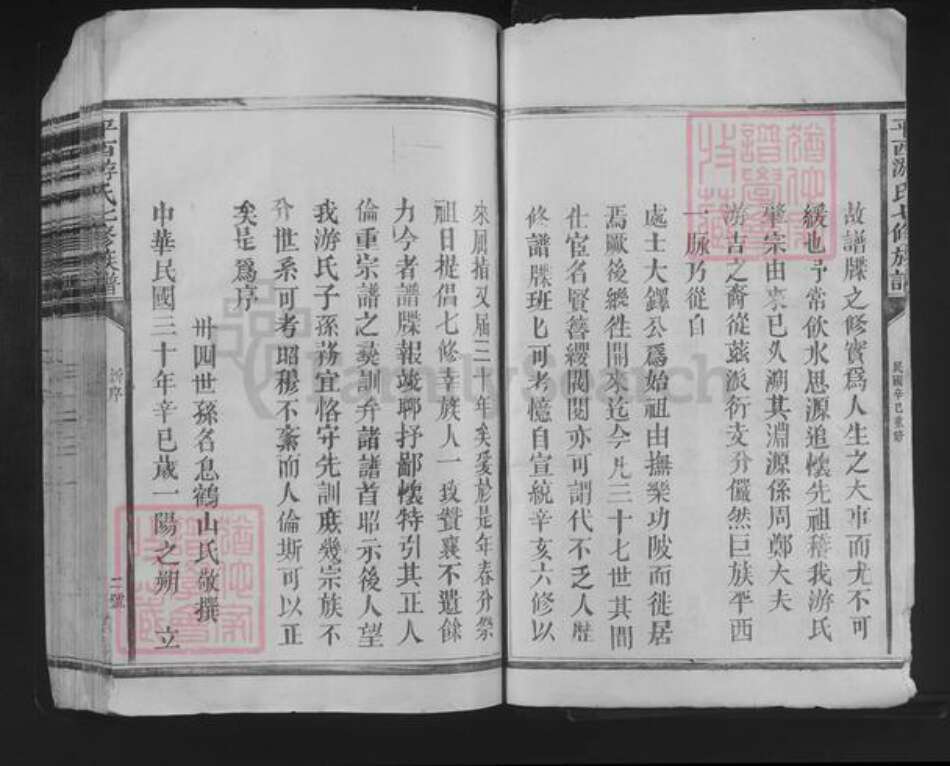 平西游氏七修族譜
民國辛巳重修
故譜牒之修實爲人生之大事而尤不可
緩也予常飲水思源追懷先祖稽我游氏
肇宗由來已久溯其淵源係周鄭大夫
游吉之裔從茲派衍支分儼然巨族平西
一脉乃從自
處士大鐸公爲始祖由撫樂功陂而徙居
焉厥後繼徃開來迄今凡三十七世其間
仕宦名賢簪纓閥閱亦可謂代不乏人歷
修譜牒班七可考憶自宣統辛亥六修以
來屈指又屆三十年矣爰於是年春分祭
祖日提倡七修幸族人一致贊襄不遺餘
力今者譜牒報竣聊抒鄙懷特引其正人
倫重宗譜之彝訓弁諸譜首昭示後人望
我游氏子孫務宜恪守先訓庶幾宗族不
紊世系可考昭穆不紊而人倫斯可以正
矣是爲序
卅四世孫名息鶴山氏敬撰
中華民國三十年辛巳歲一陽之朔 立
平西游氏七修族譜
新序
二號
FamilySearch